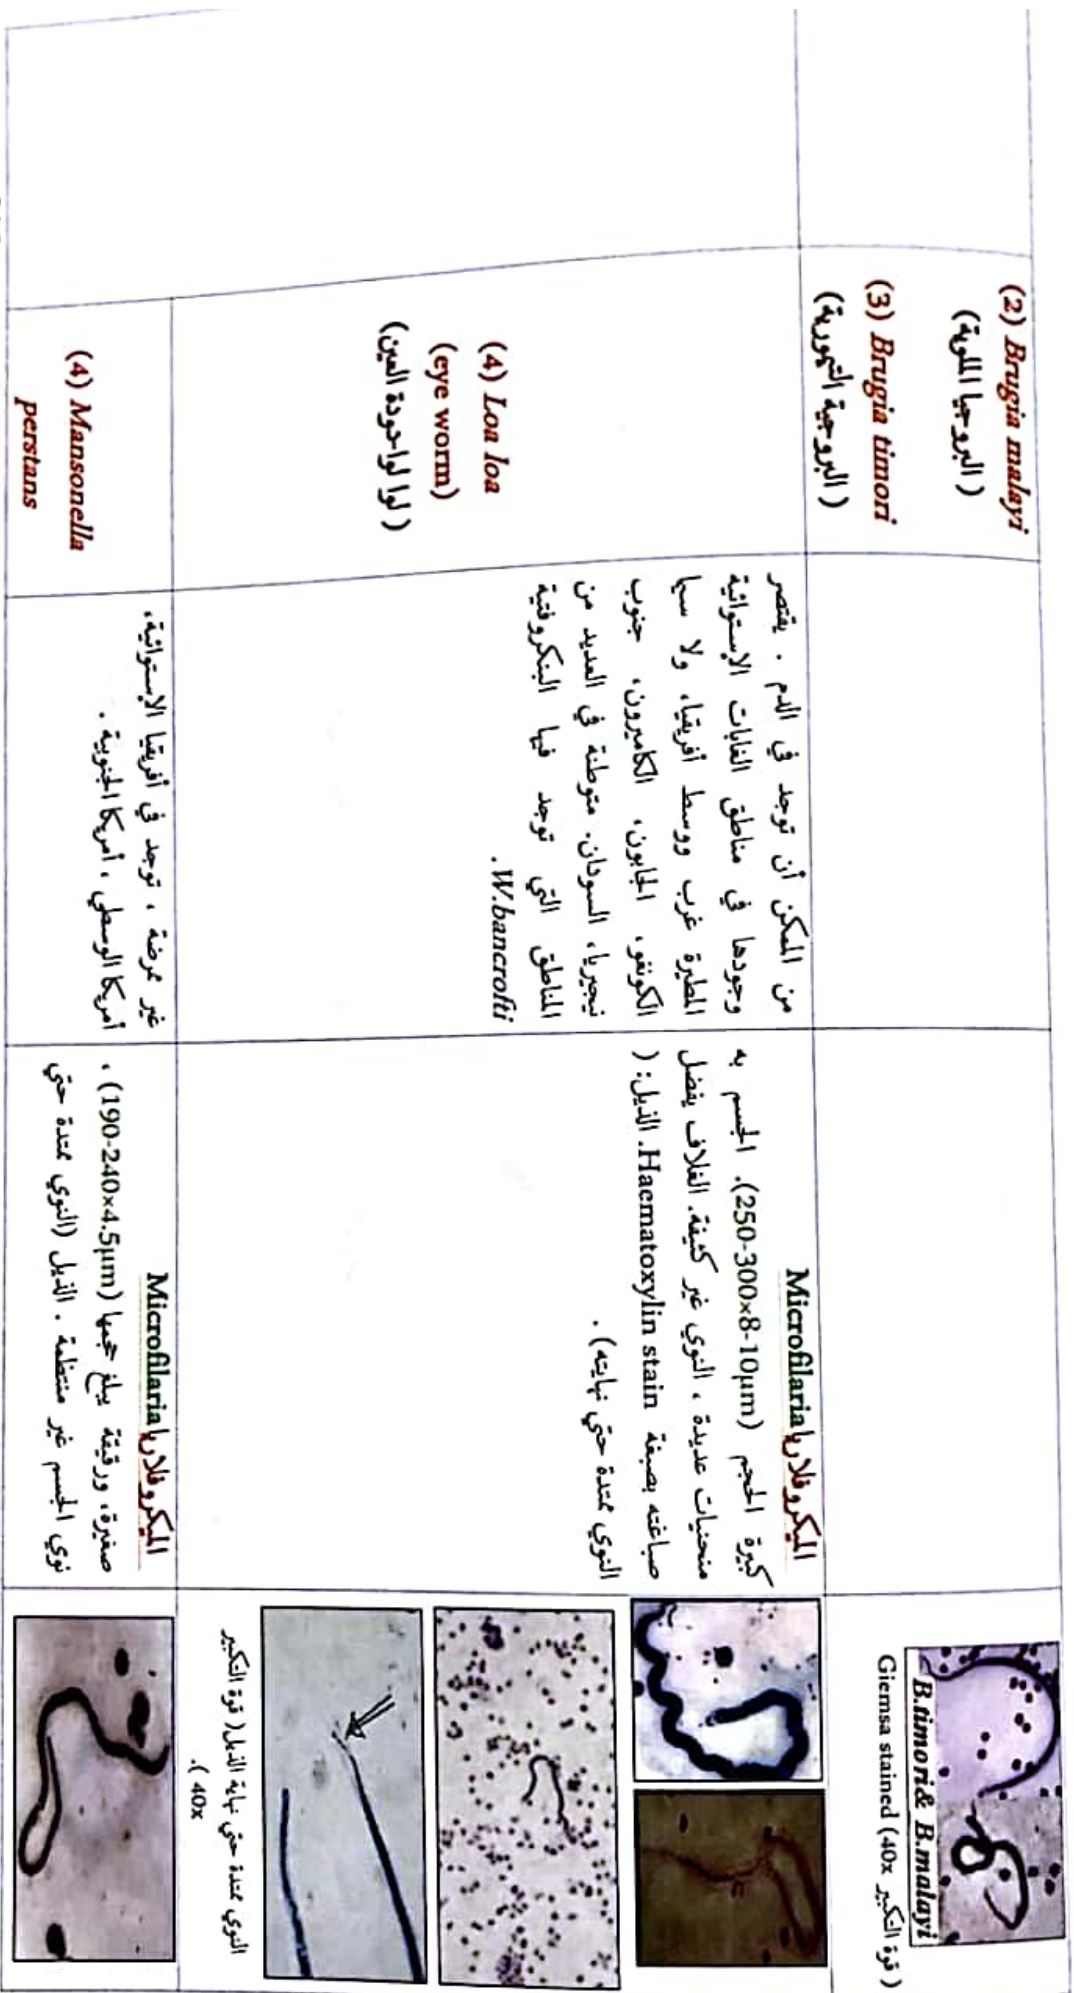 (2) Brugia malayi
(البروجيا الملوية)
(3) Brugia timori
(البروجية التيمورية)
B.timori& B.malayi
Giemsa stained (40x قوة التكبير )
(4) Loa loa
(eye worm)
(لوا لوا-دودة العين)
من الممكن أن توجد في الدم . يقتصر
وجودها في مناطق الغابات الإستوائية
المطيرة غرب ووسط أفريقيا، ولا سيما
الكونغو، الجابون، الكاميرون، جنوب
نيجيريا، السودان. متوطنة في العديد من
المناطق التي توجد فيها البنكروفتية
.W.bancrofti
الميكروفلاريا Microfilaria
كبيرة الحجم (250-300x8-10µm). الجسم به
منحنيات عديدة ، النوي غير كثيفة. الغلاف يفضل
صباغته بصبغة Haematoxylin stain. الذيل: (
النوي ممتدة حتي نهايته) .
النوي ممتدة حتي نهاية الذيل( قوة التكبير
40x ).
(4) Mansonella
perstans
غير ممرضة ، توجد في أفريقيا الإستوائية،
أمريكا الوسطي ، أمريكا الجنوبية .
الميكروفلاريا Microfilaria
صغيرة، ورقيقة يبلغ حجمها (190-240x4.5µm) .
نوي الجسم غير منتظمة . الذيل (النوي ممتدة حتي